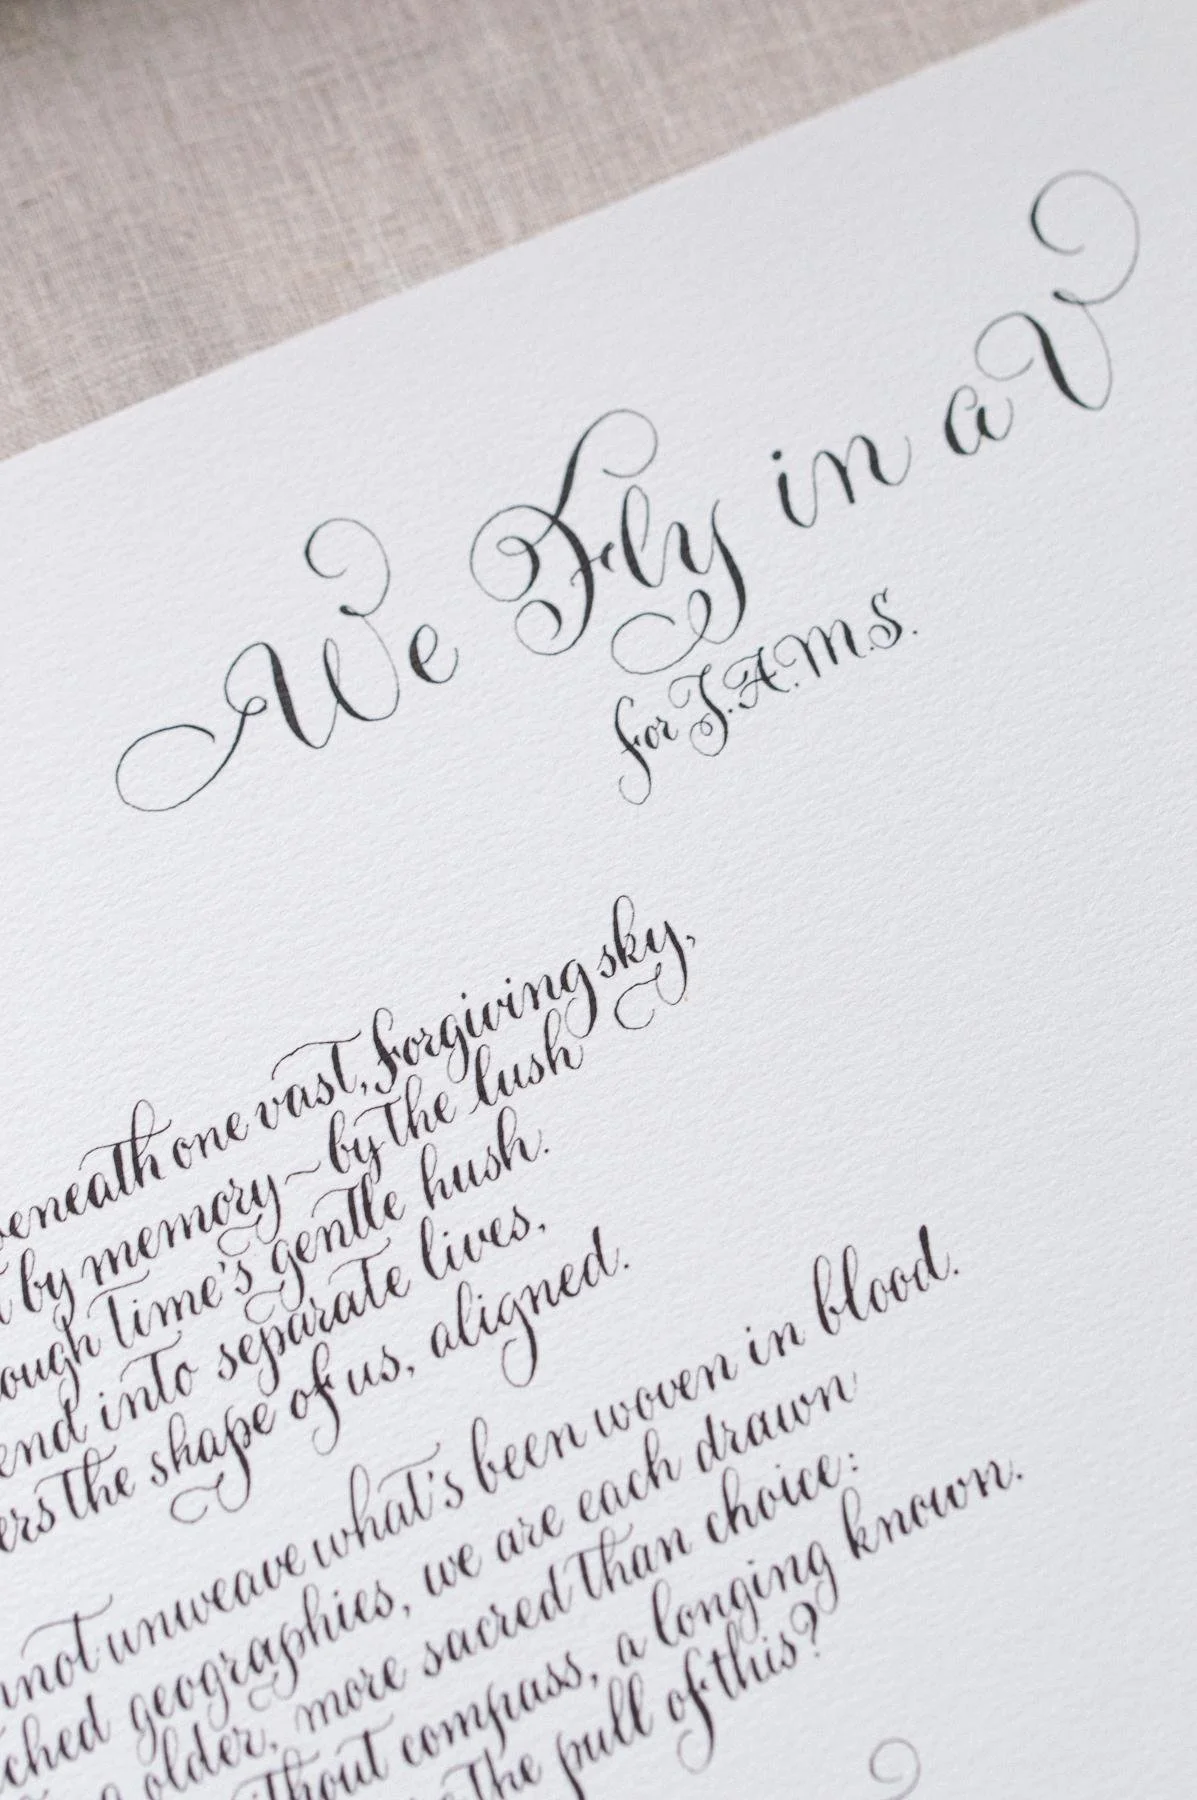 We Fly in a V
for J.A.M.S.
beneath one vast, forgiving sky,
by memory~by the lush
time's gentle hush.
into separate lives,
the shape of us, aligned.
unweave what's been woven in blood.
geographies, we are each drawn
older, more sacred than choice:
compass, a longing known.
the pull of this?